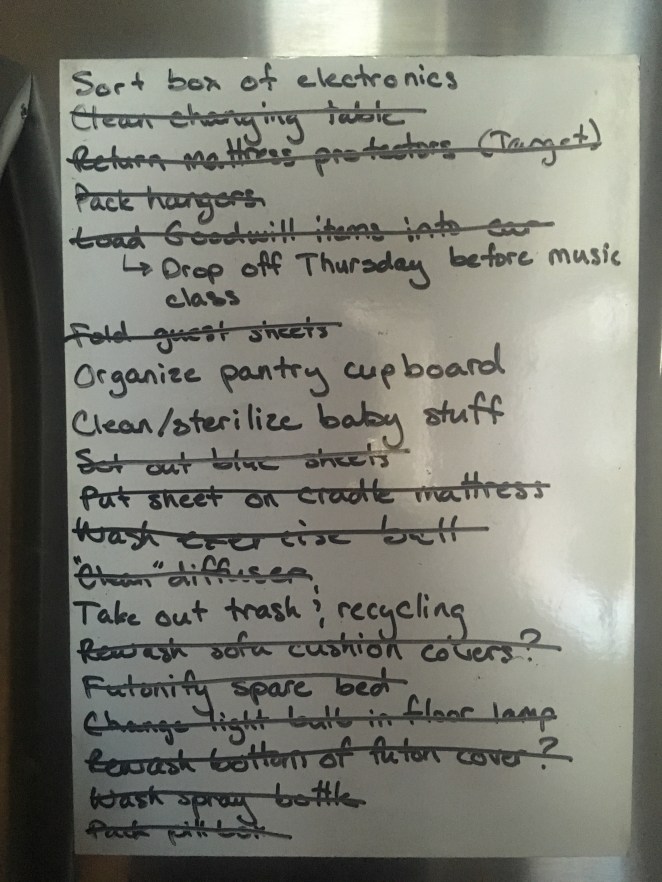 Sort box of electronics
Clean changing table
Return mattress protectors (Target)
Pack hangers
Load Goodwill items into car
↳ Drop off Thursday before music
class
Fold guest sheets
Organize pantry cupboard
Clean/sterilize baby stuff
Set out blue sheets
Put sheet on cradle mattress
Wash exercise ball
"Clean" diffuser
Take out trash & recycling
Rewash sofa cushion covers?
Futonify spare bed
Change light bulb in floor lamp
Rewash bottom of futon cover?
Wash spray bottle
Pack pill box